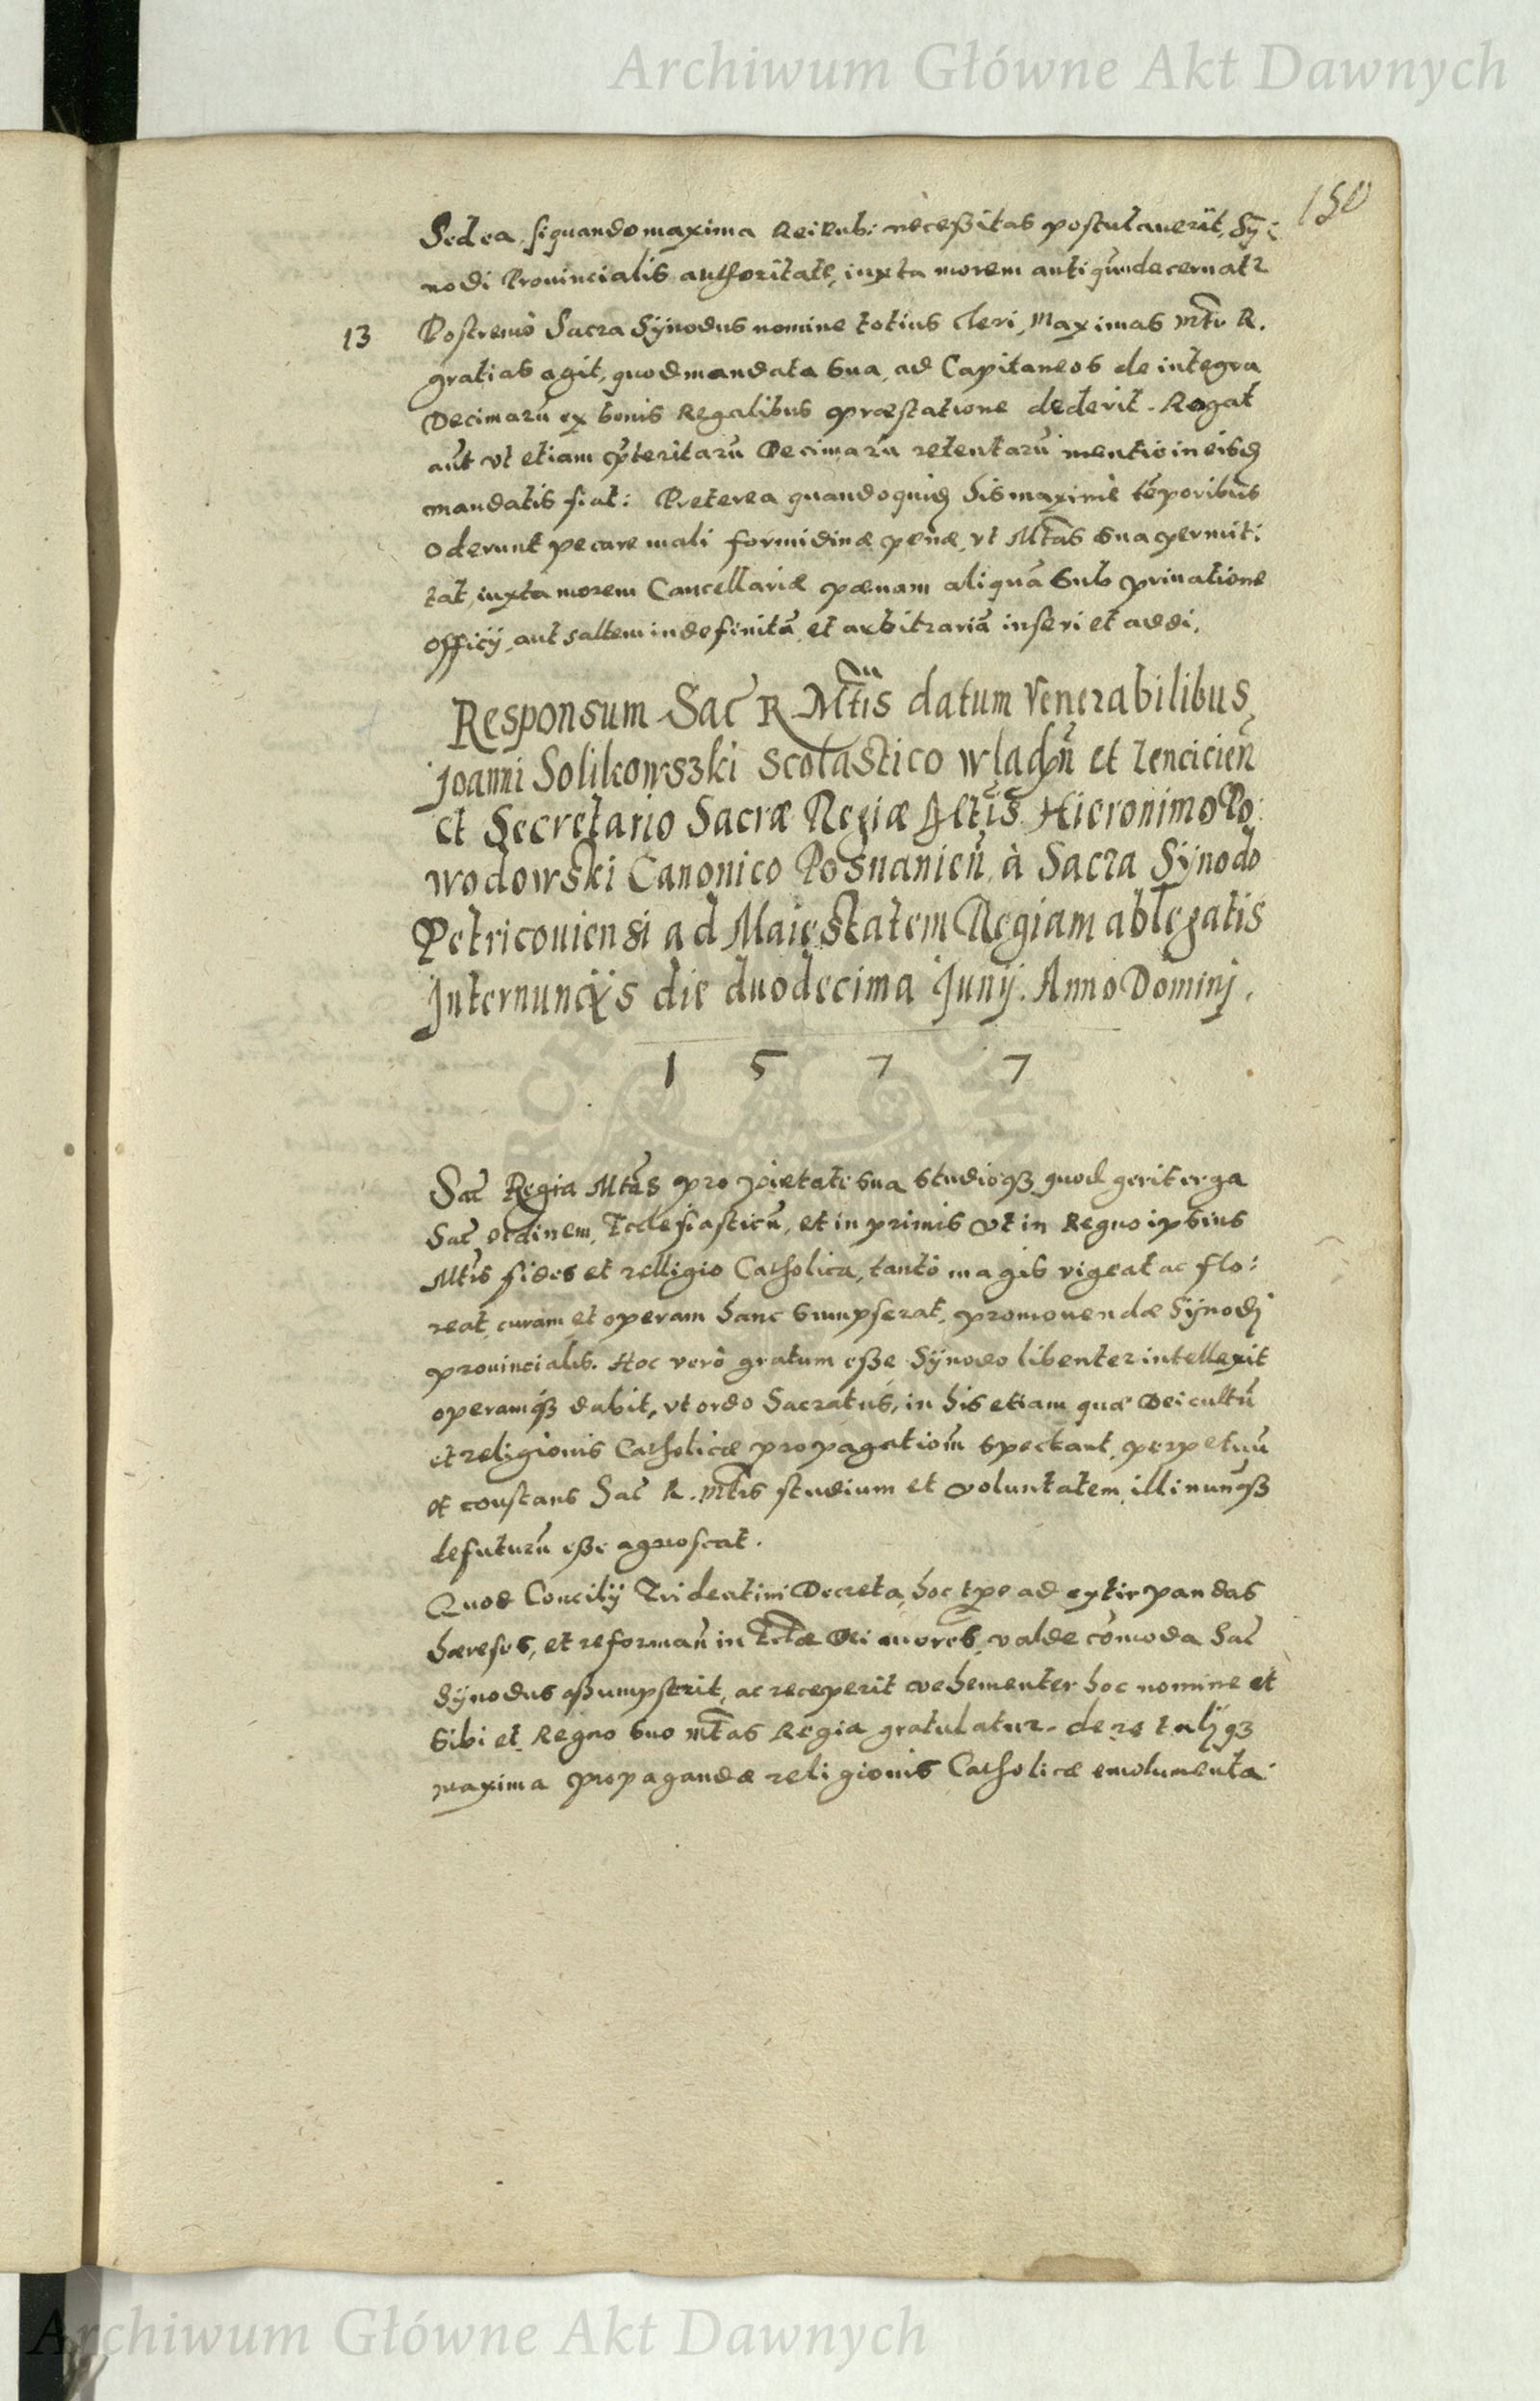 Archiwum Główne Akt Dawnych
150
Sed ea, siquando maxima Rei Pub: neceßitas postulauerit, Sÿ:
nodi Prouincialis authoritate, iuxta morem antiqũ decernatr
13 Postremò Sacra Sÿnodus nomine totius Cleri, Maximas Mti R.
gratias agit, quod mandata sua, ad Capitaneos de integra
Decimarũ ex bonis Regalibus præstatione dederit. Rogat
aũt vt etiam p̃teritarũ Decimarũ retentarũ mentio in eisd
mandatis fiat: Preterea quandoquid his maximè tẽporibus
oderunt pecare mali formidinæ penæ, vt Mtas sua permit:
tat, iuxta morem Cancellariæ pænam aliquã sub priuatione
officij, aut saltem indefinitã et arbitrariã inseri et addi.
Responsum Sac R Mtis datum Venerabilibus
Joanni Solikowszki Scolastico Wladñ et Lencicieñ
et Secretario Sacræ Regiæ Mtis Hieronimo Po:
wodowski Canonico Posnanieñ à Sacra Sÿnodo
Petricouiensi ad Maiestatem Regiam ablegatis
Internuncÿs die duodecima Junij. Anno Dominj.
1 5 7 7
Sac Regia Mtas pro pietate sua studioqꝫ quod gerit erga
Sac ordinem Ecclesiasticũ, et in primis vt in Regno ipsius
Mtis fides et relligio Catholica, tantò magis vigeat ac flo:
reat, curam et operam hanc sumpserat, promouendæ Sÿnodj
prouincialis. Hoc verò gratum eße Sÿnodo libenter intellexit
operamqꝫ dabit, vt ordo Sacratus, in his etiam quæ Dei cultũ
et religionis Catholicæ propagatiom̃ spectant, perpetuũ
et constans Sac R. Mtis studium et voluntatem illi nunqꝫ
defuturũ eße agnoscat.
Quod Concilij Tridentini Decreta, hoc tpe ad extirpandas
hæreses, et reformañ in Ecclæ Dei mores, valde cõmoda Sac
Sÿnodus aßumpserit, ac receperit vehementer hoc nomine et
sibi et Regno suo Mtas Regia gratulatur. de re talj qꝫ
maxima propagandæ religionis Catholicæ emolumenta
Archiwum Główne Akt Dawnych